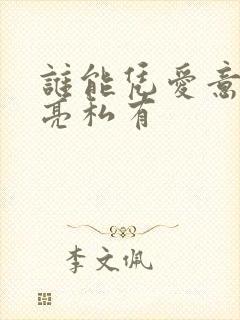 誰能凭愛意
亮私有
李文佩